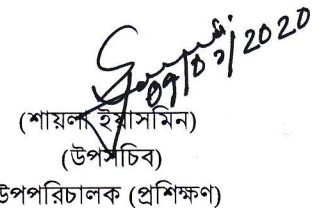 09/02/2020
(শায়লা ইয়াসমিন)
(উপসচিব)
উপপরিচালক (প্রশিক্ষণ)